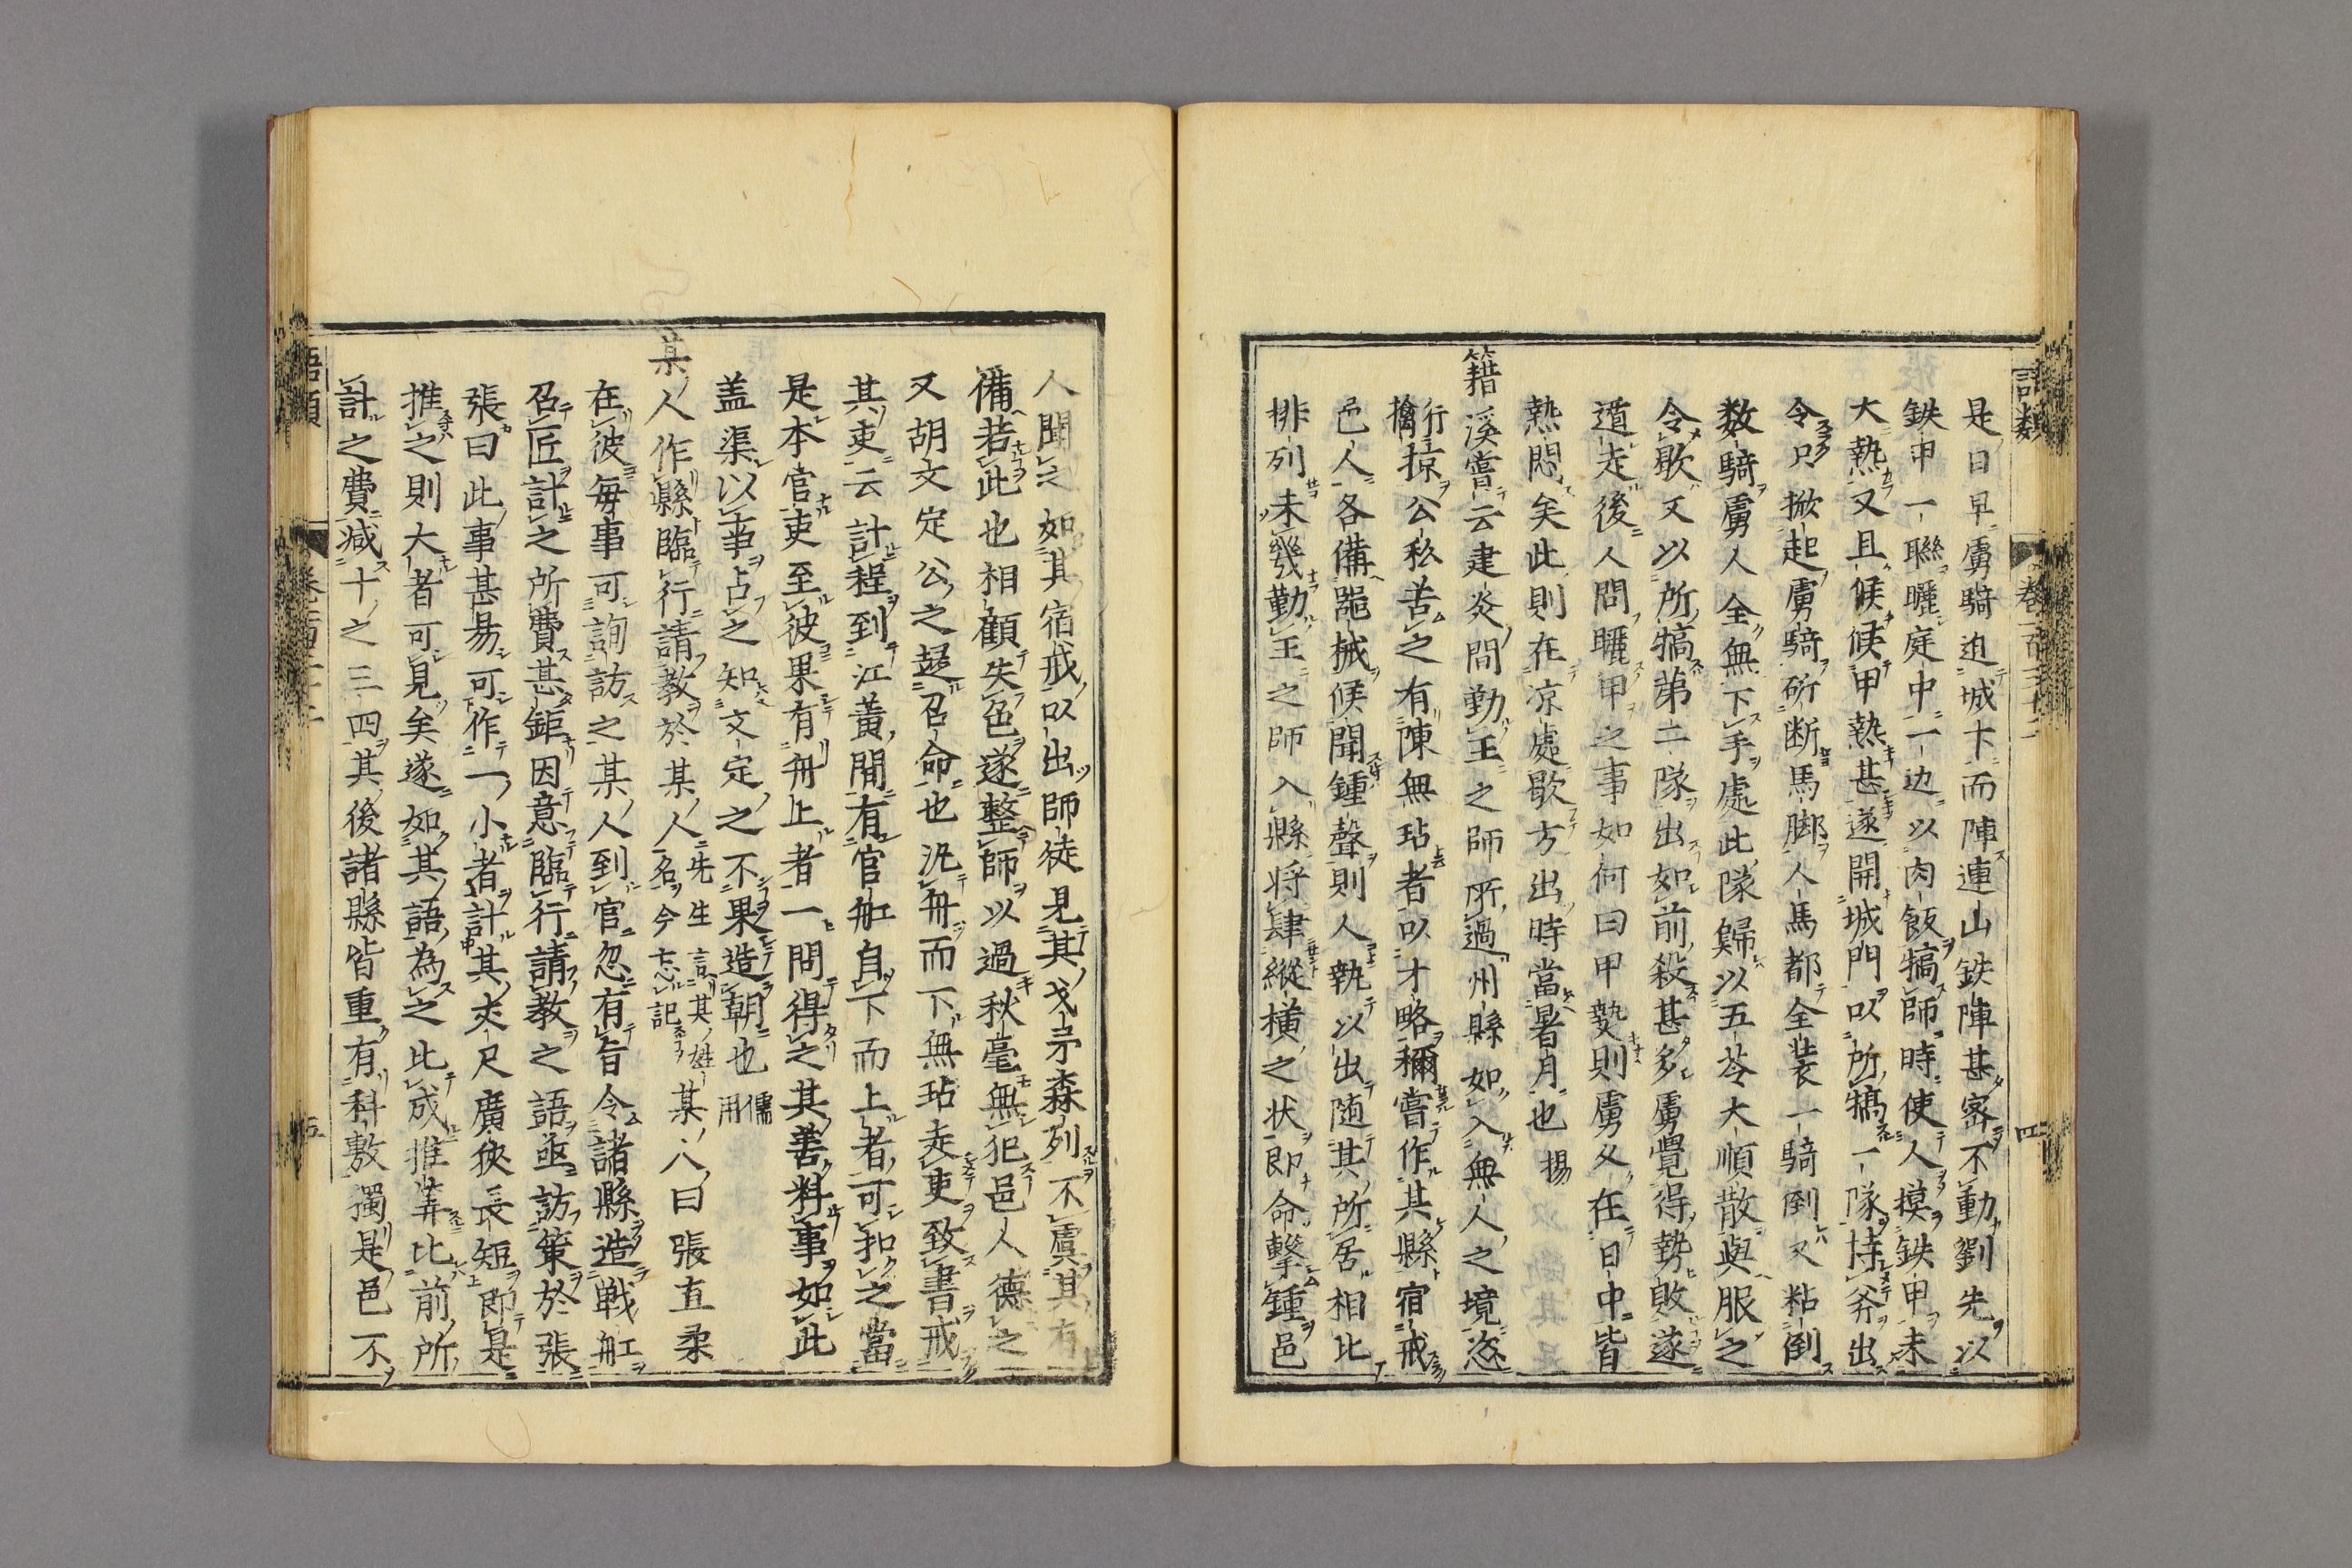 語類 卷一百三十二 四
是日早虜騎迫城下而陣連山鉄陣甚密不動劉先以
鉄甲一聯曬庭中一边以肉飯犒師時使人摸鉄甲未
大熱又且候候甲熱甚遂開城門以所犒一隊持斧出
令只掀起虜騎斫断馬脚人馬都全装一騎倒又粘倒
数騎虜人全無下手處此隊歸以五苓大順散與服之
令歇又以所犒第二隊出如前殺甚多虜覺得勢敗遂
遁走後人問曬甲之事如何曰甲熱則虜久在日中皆
熱悶矣此則在凉處歇方出時當暑月也 揚
籍溪嘗云建炎間勤王之師所過州縣如入無人之境恣
行擒掠公私苦之有陳無玷者以才略稱嘗作某縣宿戒
邑人各備噐械候聞鍾聲則人執以出随其所居相比
排列未幾勤王之師入縣将肆縱橫之状即命擊鍾邑
人聞之如其宿戒以出師徒見其戈矛森列不虞其有
備若此也相顧失色遂整師以過秋毫無犯邑人德之
又胡文定公之趍召命也汎舟而下無玷走吏致書戒
其吏云計程到江黃間有官舡自下而上者可扣之當
是本官吏至彼果有舟上者一問得之其善料事如此
盖渠以事占之知文定之不果造朝也 儒用
某人作縣臨行請教於某人 先生言其姓名今忘記 某人曰張直柔
在彼每事可詢訪之某人到官忽有旨令諸縣造戦舡
召匠計之所費甚鉅因意臨行請教之語亟訪策於張
張曰此事甚易可作一小者計其丈尺廣狹長短即是
推之則大者可見矣遂如其語為之比成推筭比前所
計之費减十之三四其後諸縣皆重有科敷獨是邑不
語類 卷一百三十二 五